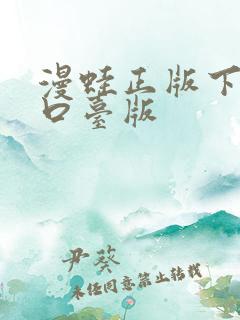 漫蛙正版下
口臺版
尹葵
未经同意禁止转载